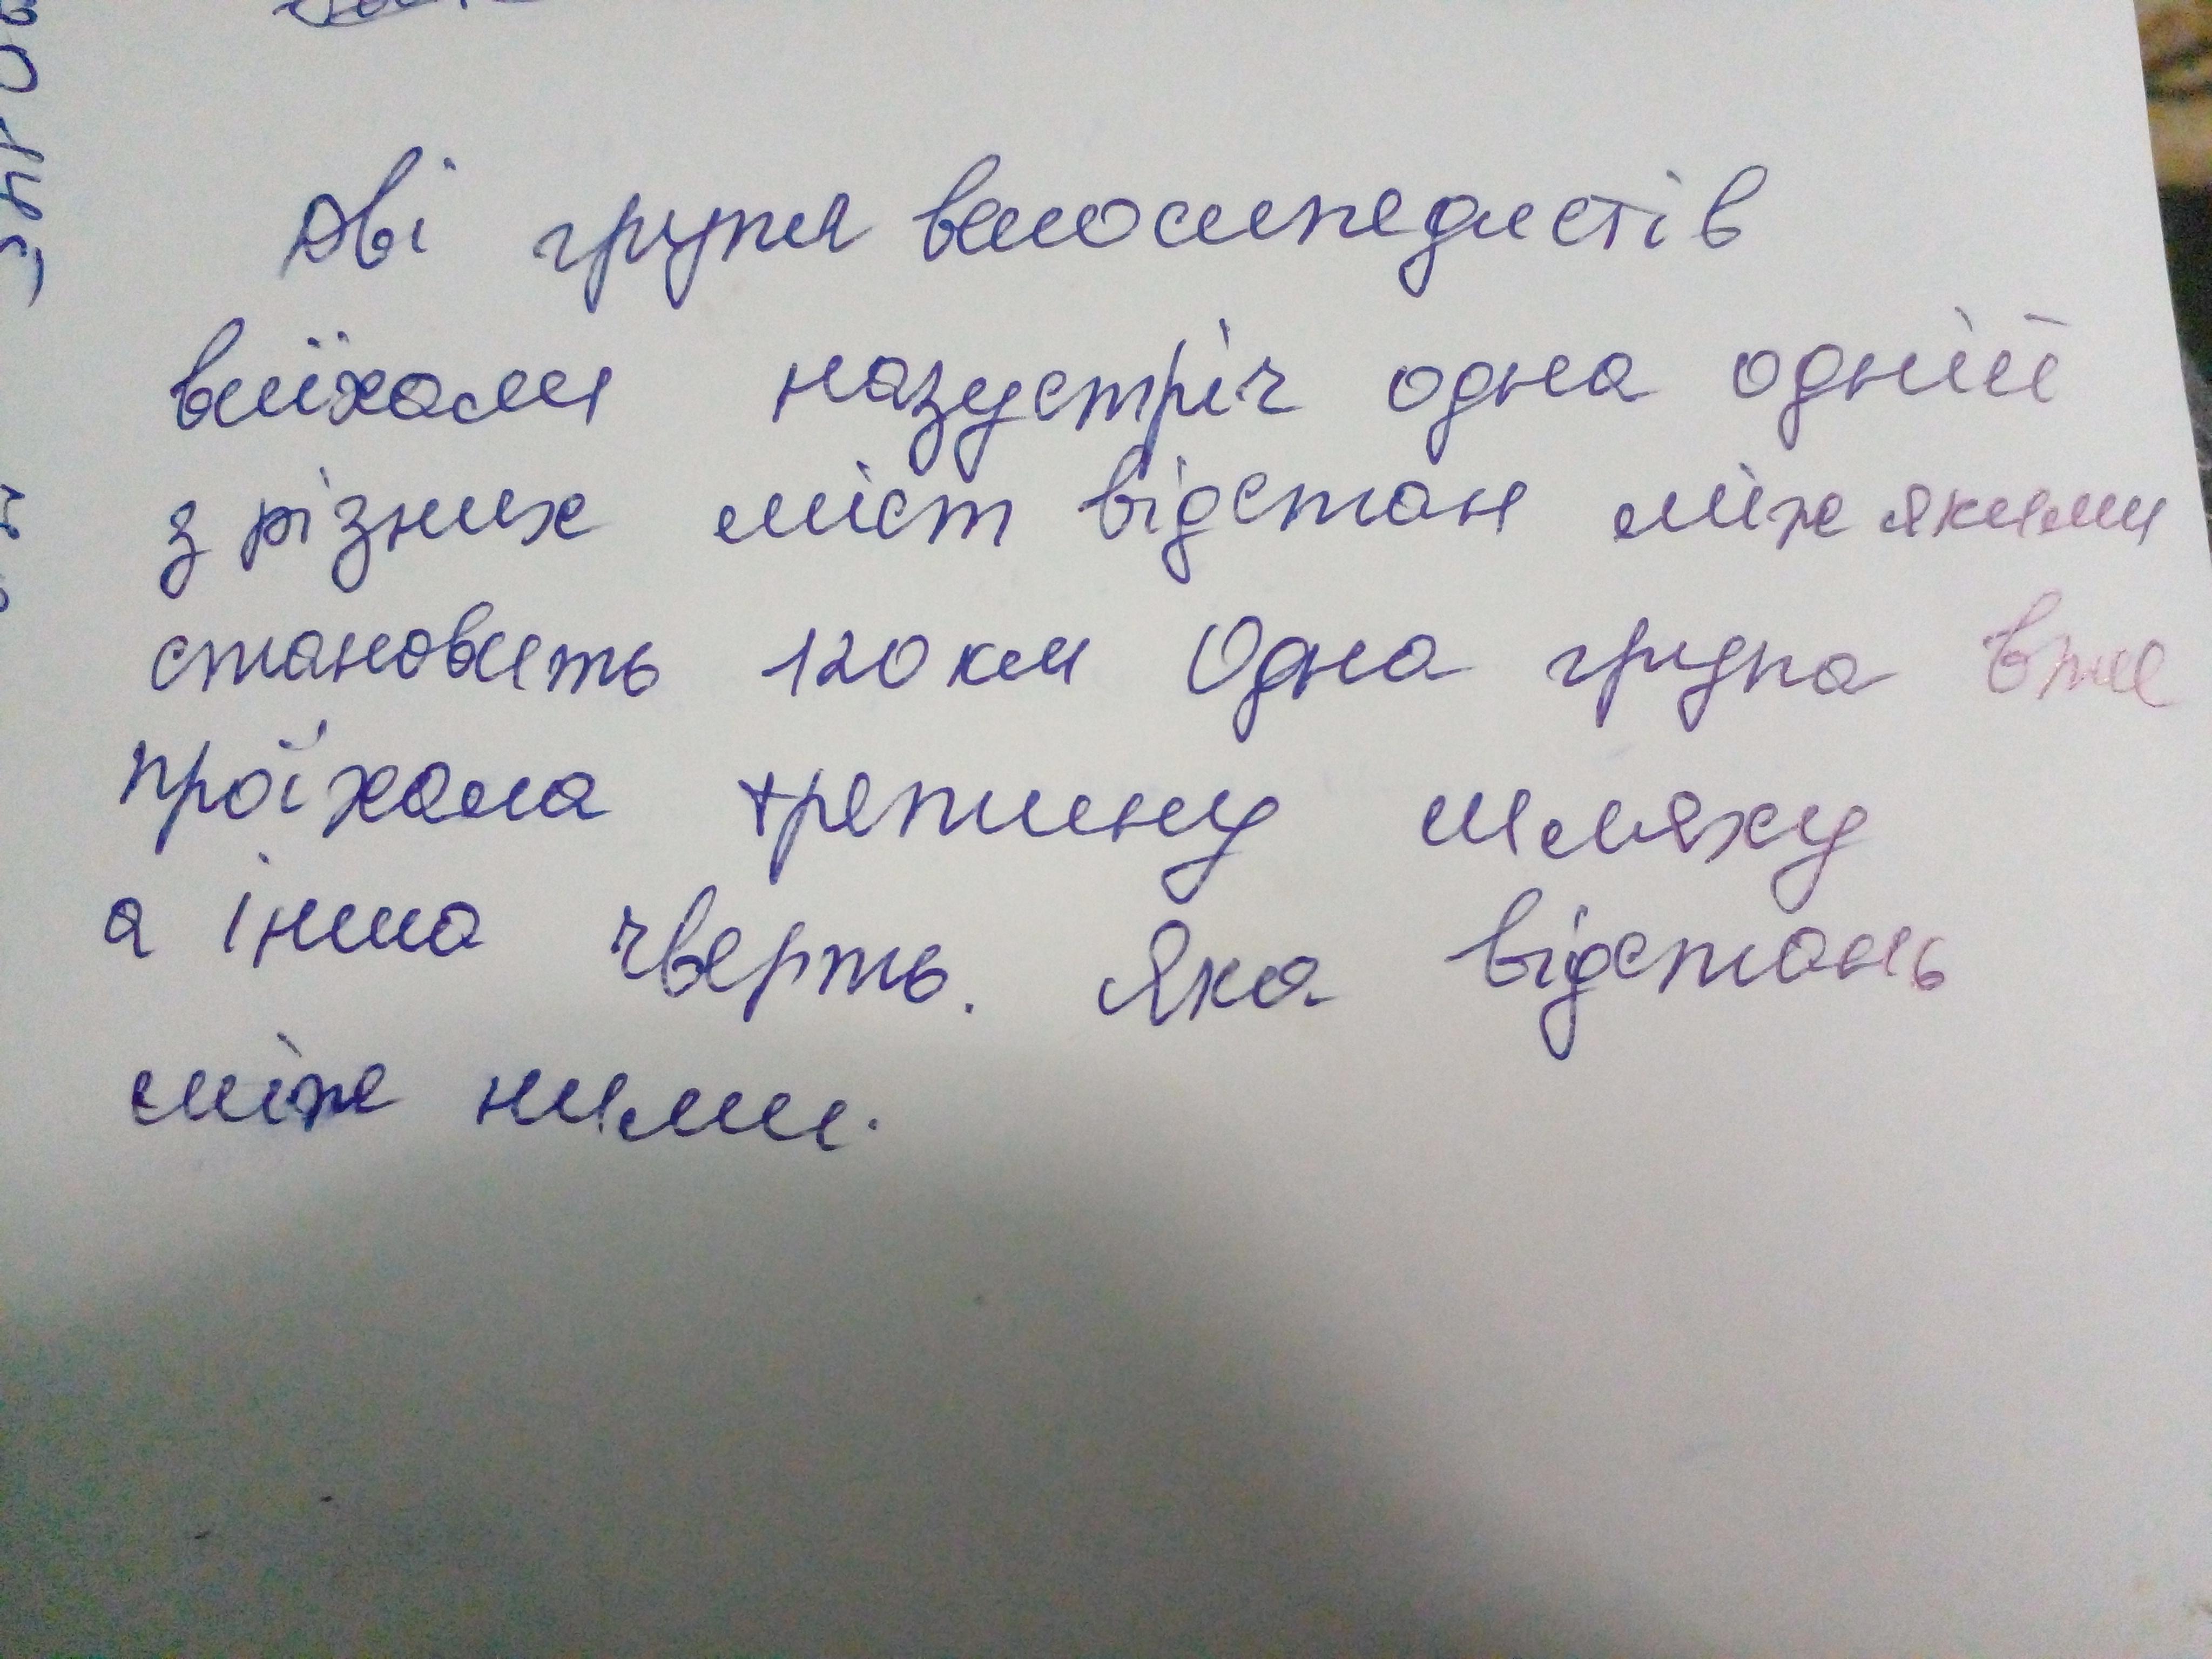 Дві групи велосипедистів
виїхали назустріч одна одній
з різних міст відстан між якими
становить 120 км Одна група вже
проїхала третину шляху
а інша чверть. Яка відстань
між ними.